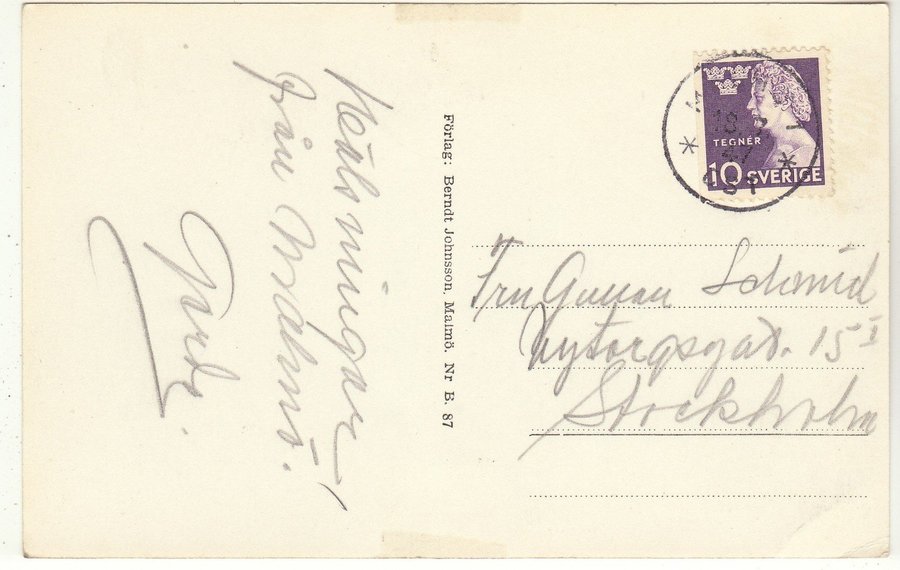 Hälsningar
från Malmö.
Förlag: Berndt Johnsson, Malmö. Nr B. 87
TEGNÉR
10 SVERIGE
18
47
Fru Gunan Schmid
Nytorgsgat. 15 I
Stockholm